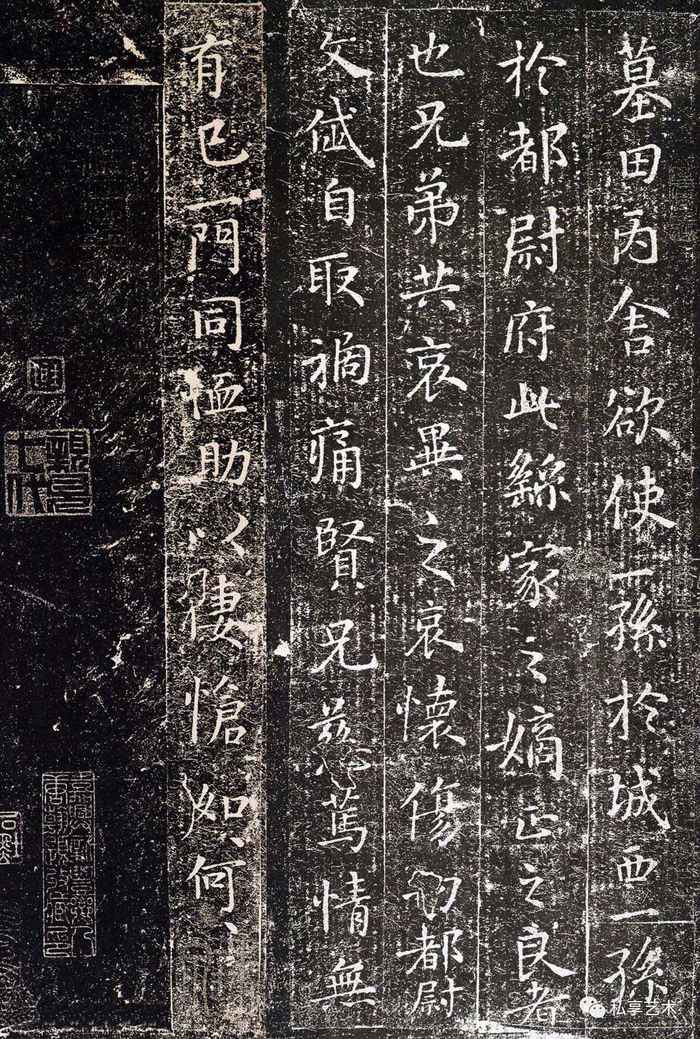 墓田丙舍欲使一孫於城西一孫
於都尉府此繇家之嫡正之良者
也兄弟共哀異之哀懷傷切都尉
文岱自取禍痛賢兄慈篤情無
有已一門同恤助以悽愴如、何、
私享艺术